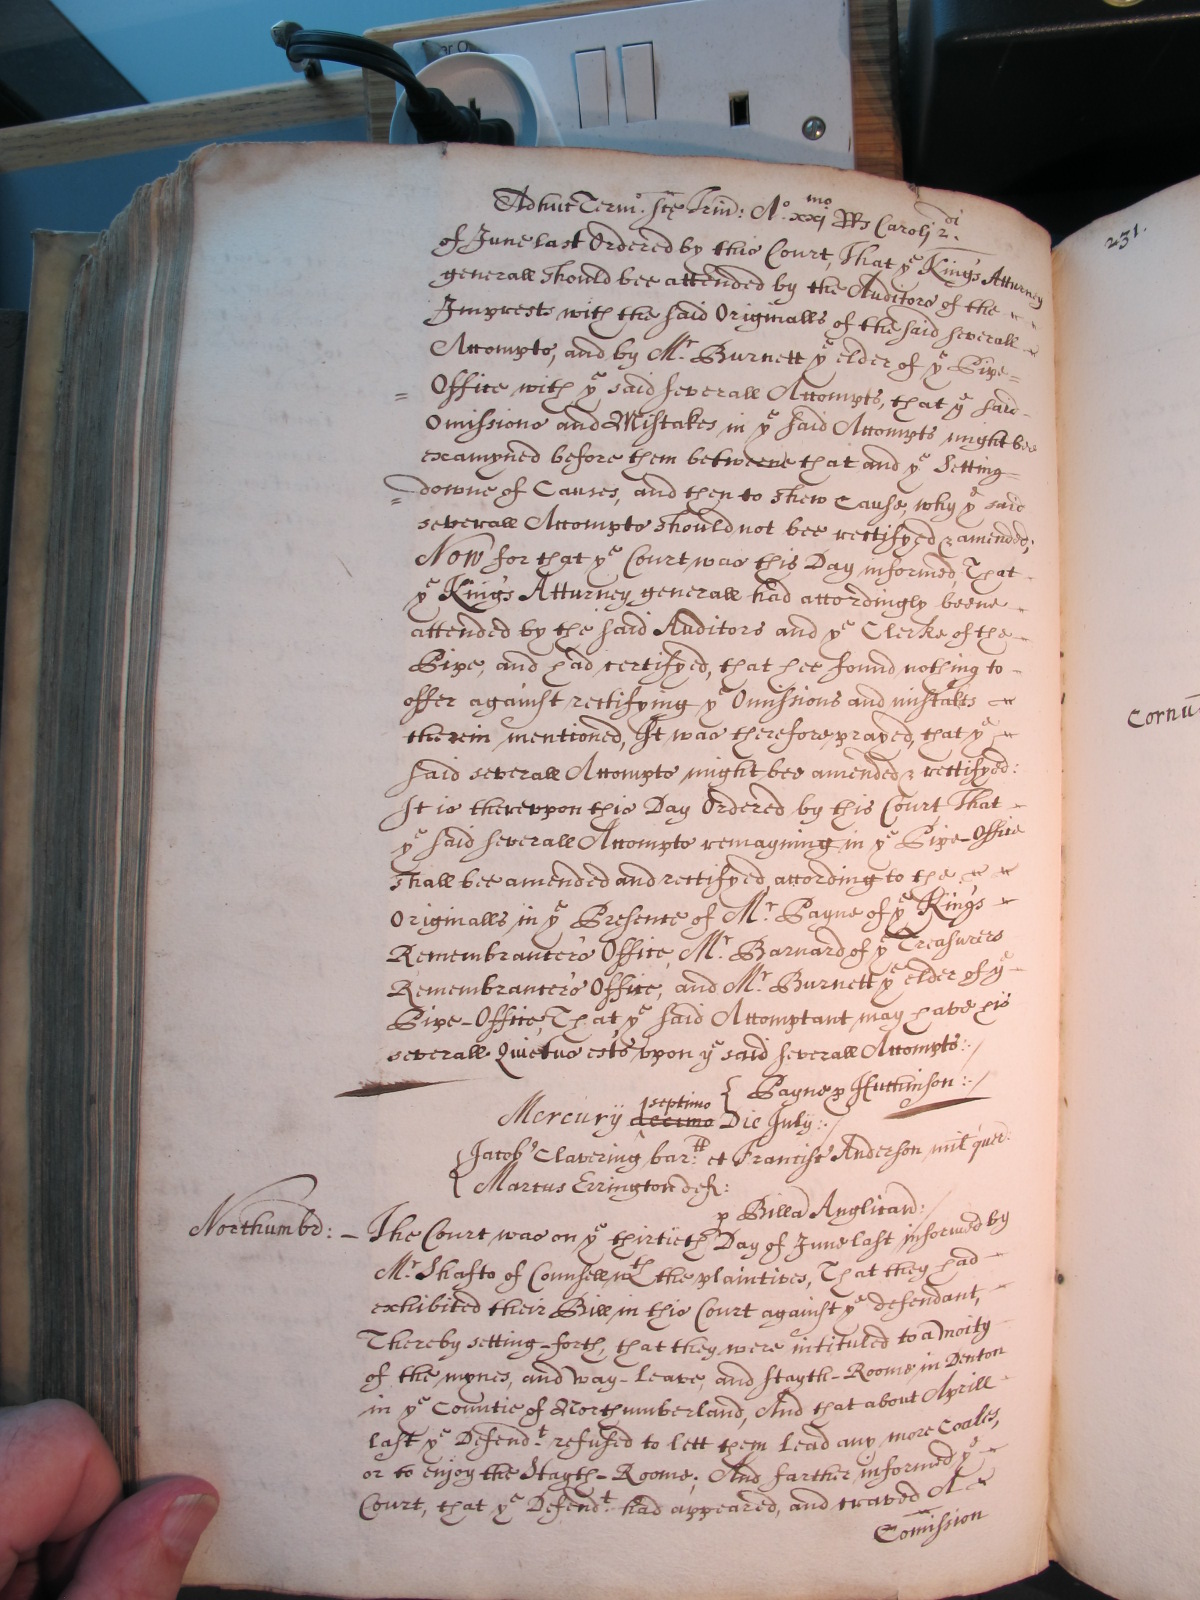 Adhuc Term: Sce Trin: Ao. xxjmo RRs Caroli 2di.
of June last Ordered by this Court, That ye Kings Atturney
generall should bee attended by the Auditors of the
Imprests with the said Originalls of the said severall
Accompts, and by Mr Burnett ye elder of ye Pipe=
Office with ye said severall Accompts, that ye said
Omissions and Mistakes in ye said Accompts might bee
examyned before them betweene that and ye Setting
downe of Causes, and then to shew Cause, why ye said
severall Accompts should not bee rectifyed & amended;
Now for that ye Court was this Day informed, That
ye Kings Atturney generall had accordingly beene
attended by the said Auditors and ye Clerke of the
Pipe, and had certifyed, that hee found nothing to
offer against rectifying ye Omissions and mistakes
therein mentioned, It was therefore prayed, that ye
said severall Accompts might bee amended & rectifyed:
It is therevpon this Day Ordered by this Court That
ye said severall Accompts remayning in ye Pipe-Office
shall bee amended and rectifyed, according to the
Originalls in ye Presence of Mr. Payne of ye Kings
Remembrancers Office, Mr. Barnard of ye Treasurers
Remembrancers Office, and Mr Burnett ye elder of ye
Pipe-Office, That ye said Accomptant may have his
severall Quietus ests vpon ye said severall Accompts:
Payne p Hutchinson:
septimo
Mercurij decimo Die July:
Jacobs Clavering bar:tt et Francisc Anderson mil quer:
Marcus Errington def:
p Billa Anglican:
Northumbd: - The Court was on ye thirtieth Day of June last informed by
Mr Shafto of Counsell wth the plaintives, That they had
exhibited their Bill in this Court against ye defendant,
Thereby setting-forth, that they were intituled to a moity
of the mynes, and way-leave, and Stayth-Roome in Denton
in ye Countie of Northumberland, And that about Aprill
last ye Defendt. refused to lett them lead any more Coales,
or to enjoy the Stayth-Roome; And farther informed ye
Court, that ye Defendt. had appeared, and craved A
Comission
231.
Cornu